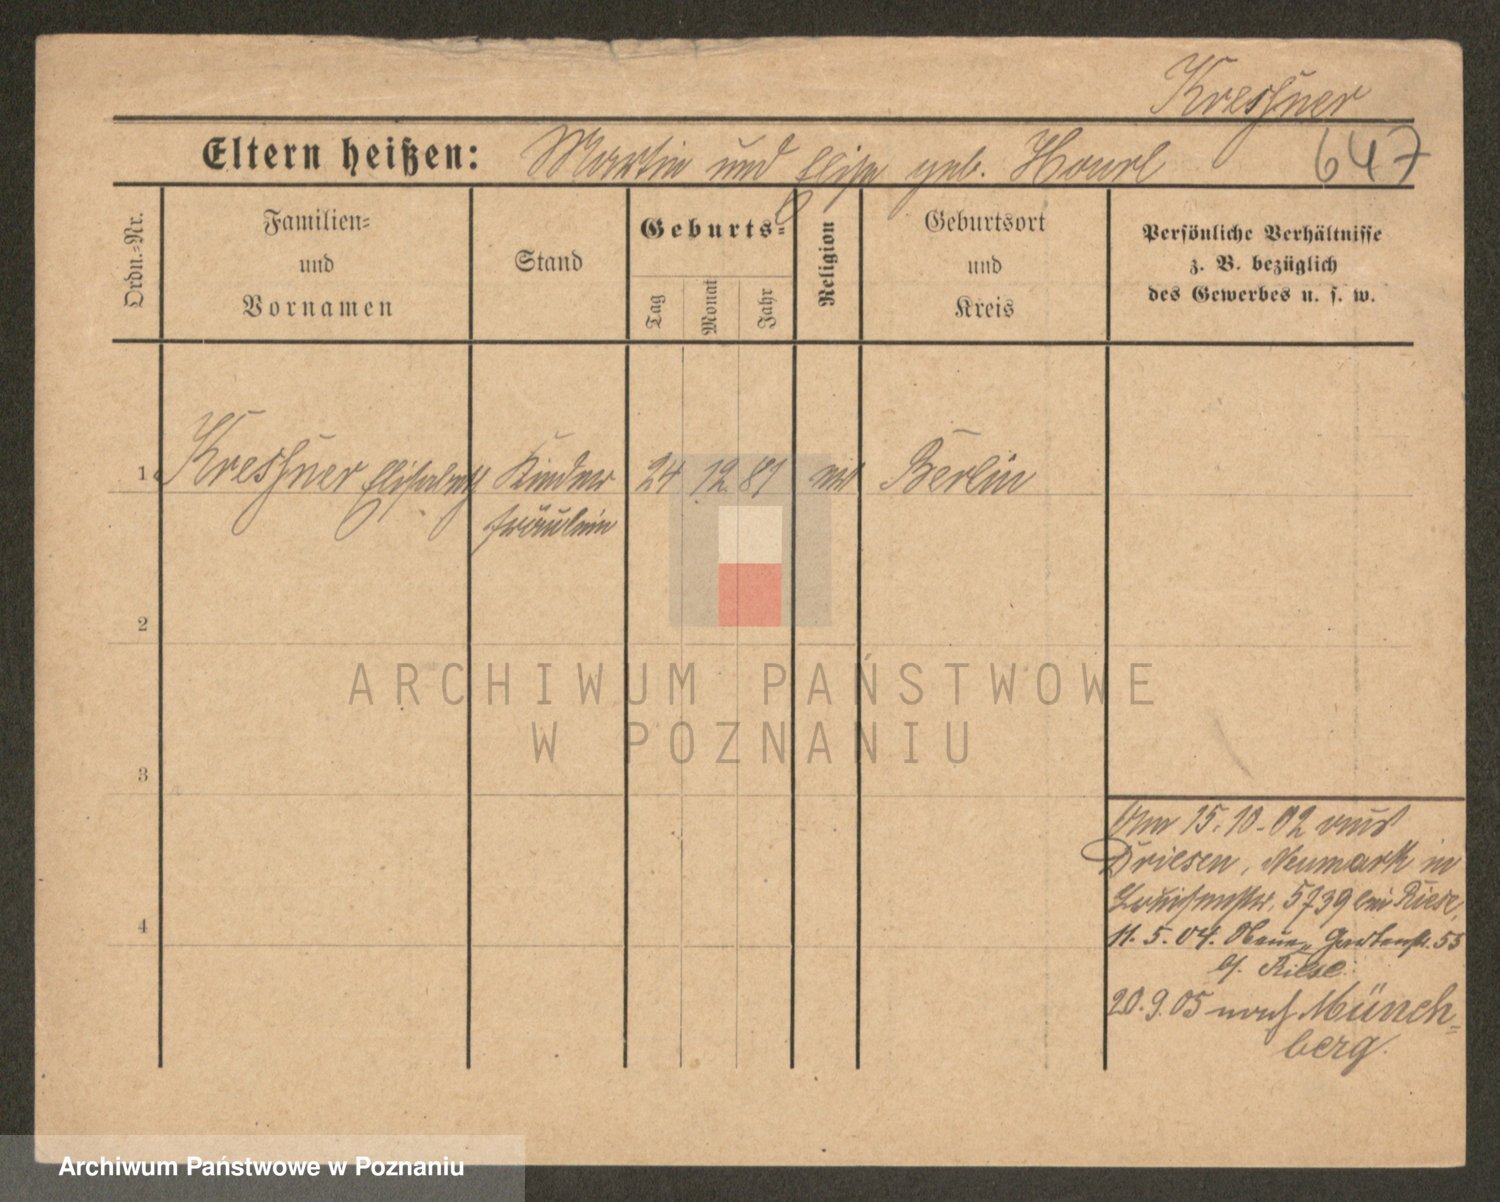 Kreshner
Eltern heißen: Martin und Elise geb.
647
Ordn.-Nr.
Familien-
und
Vornamen
Stand
Geburts-
Tag
Monat
Jahr
Religion
Geburtsort
und
Kreis
Persönliche Verhältnisse
z. B. bezüglich
des Gewerbes u. s. w.
1 Kreshner Elisabeth Kinder 24 12 81 Berlin
fräulein
2
3
4
Am 15.10.02 aus
Driesen, Neumark in
Louisenstr. 5739 bei Riese,
11.5.04. Gartenstr. 55
b/. Riese.
20.9.05 nach Münch-
berg.
ARCHIWUM PAŃSTWOWE
W POZNANIU
Archiwum Państwowe w Poznaniu